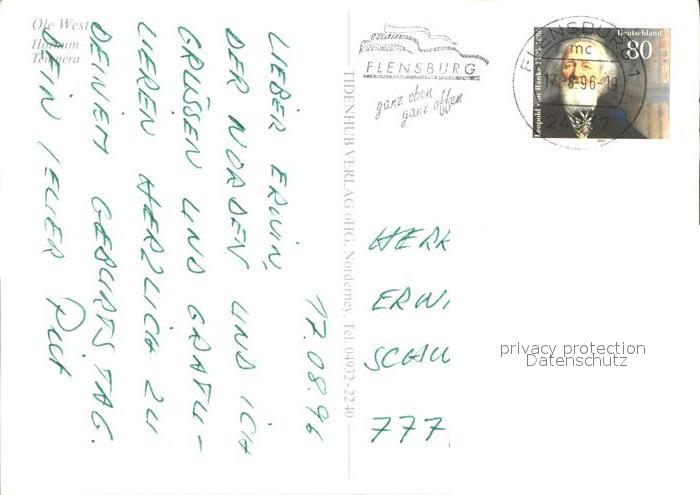 Ole West
Hörnum
Tempera
17.08.96
LIEBER ERWIN,
DER NORDEN UND ICH
GRÜSSEN UND GRATU-
LIEREN HERZLICH ZU
DEINEM GEBURTSTAG.
DEIN
TIDENHUB VERLAG oHG, Norderney, Tel. 04932-2240
FLENSBURG
ganz oben
ganz offen
FLENSBURG 1
mc
17.-8.96-19
Deutschland
80
Leopold von Ranke 1795-1886
HERR
ERWI
SCHU
777
privacy protection
Datenschutz